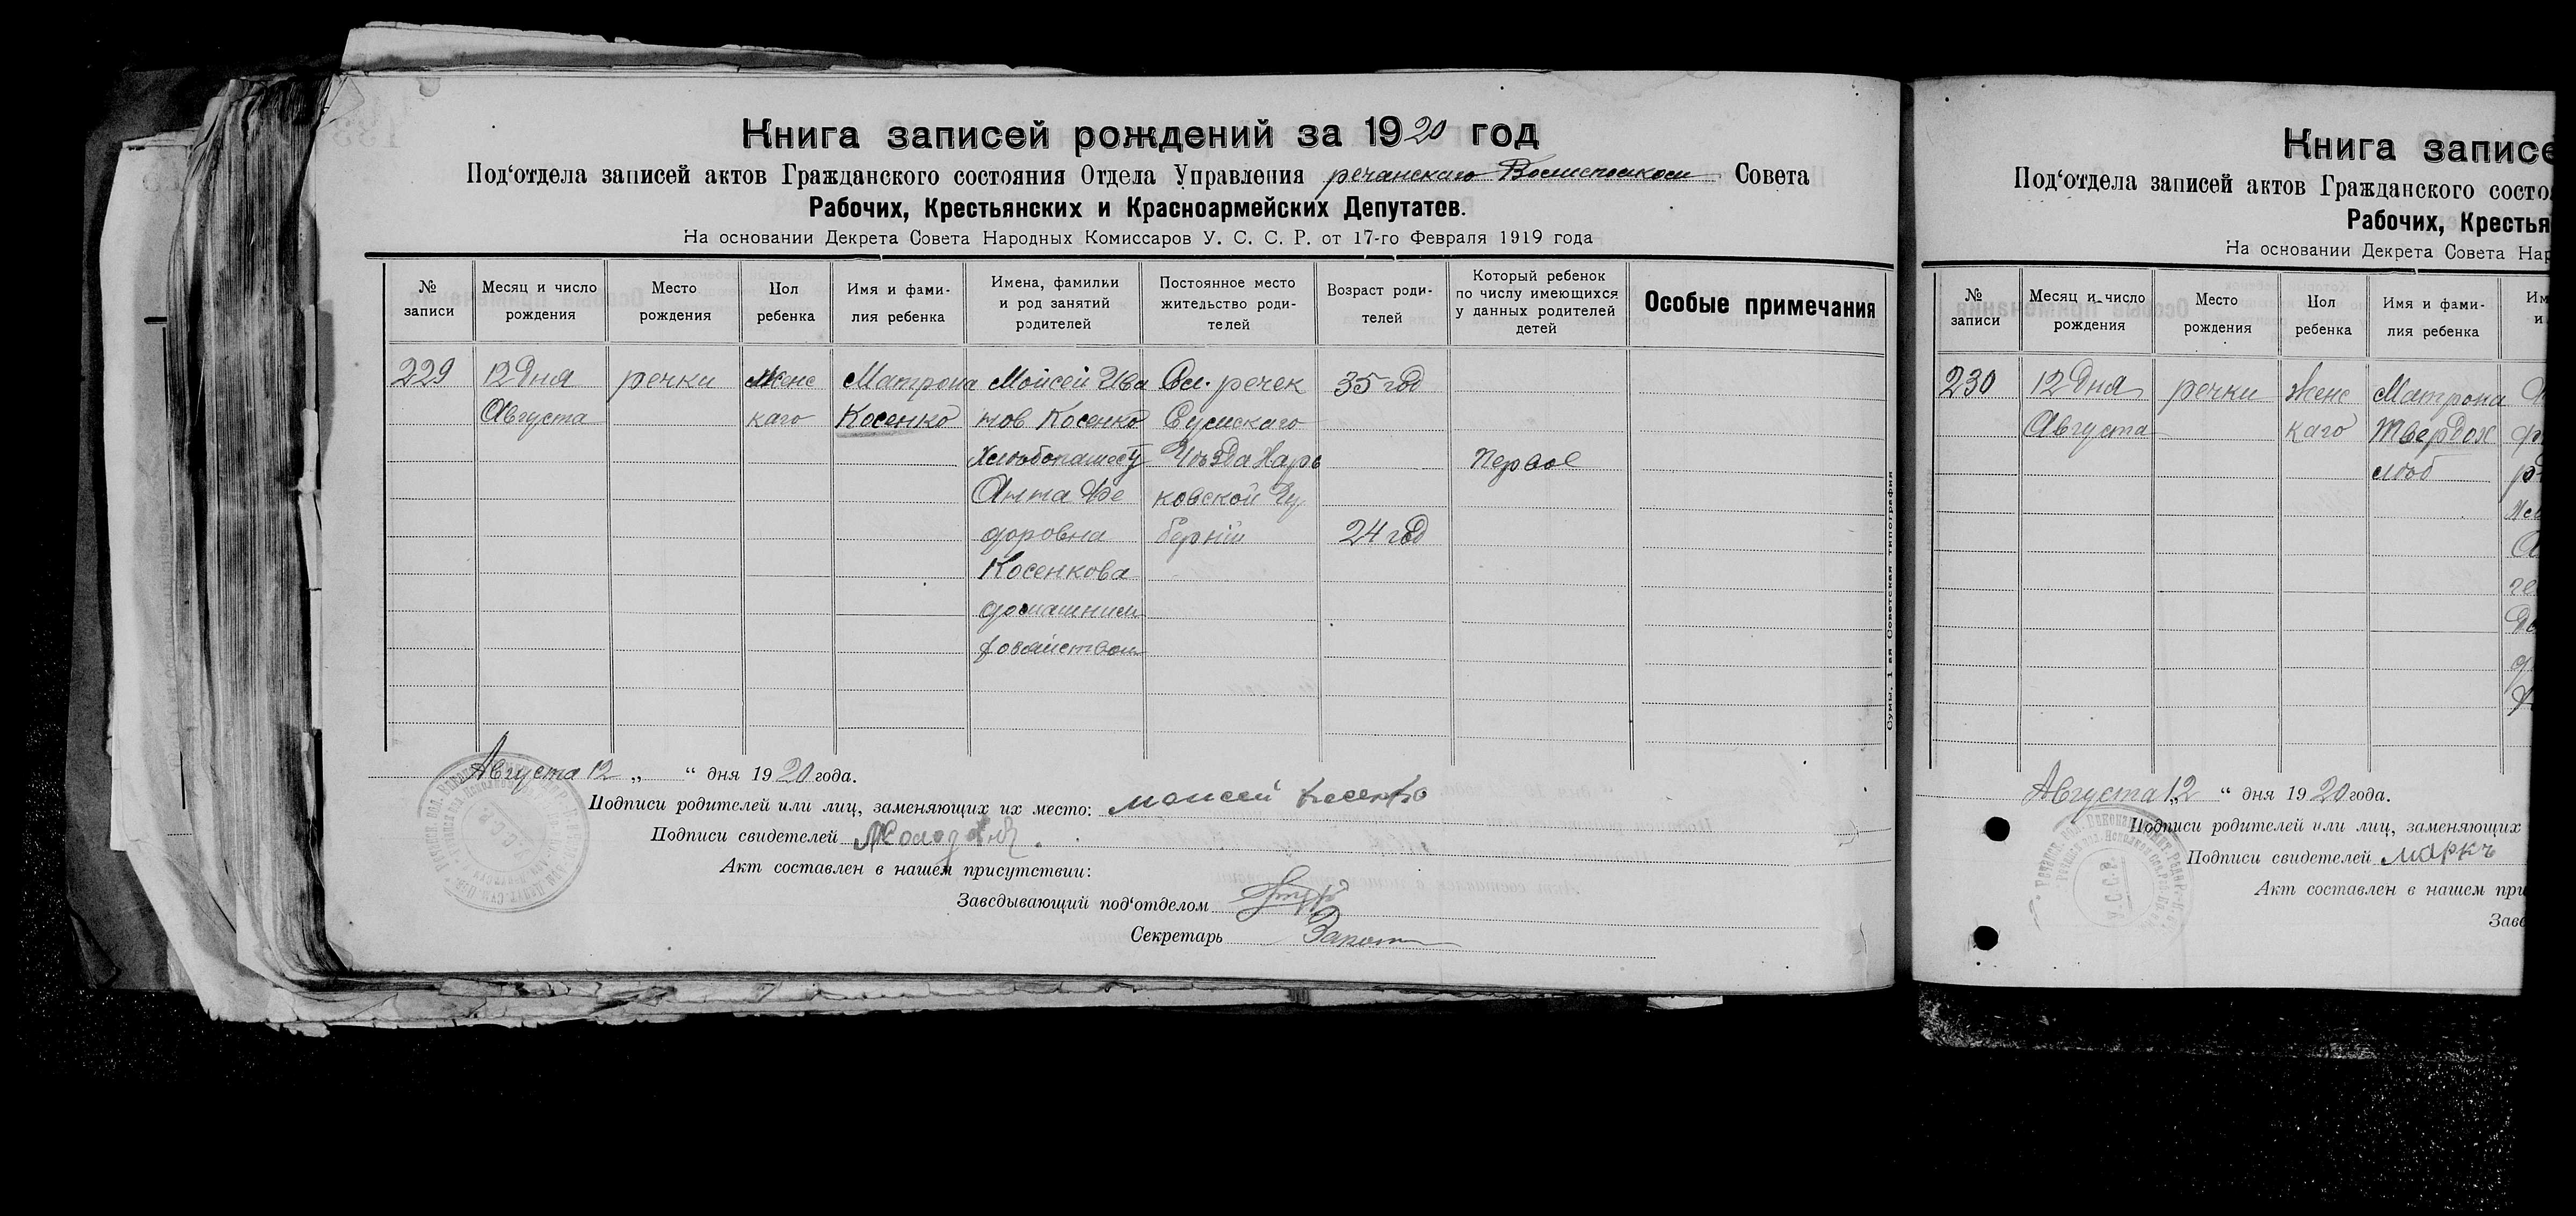 Книга записей рождений за 1920 год
Под‘отдела записей актов Гражданского состояния Отдела Управления речанскаго Волисполком Совета
Рабочих, Крестьянских и Красноармейских Депутатов.
На основании Декрета Совета Народных Комиссаров У. С. С. Р. от 17-го Февраля 1919 года
№ записи
Месяц и число рождения
Место рождения
Пол ребенка
Имя и фами-
лия ребенка
Имена, фамилии
и род занятий
родителей
Постоянное место
жительство роди-
телей
Возраст роди-
телей
Который ребенок
по числу имеющихся
у данных родителей
детей
Особые примечания
229 12 дня речки Женс Матрона Моисей Ива Сл. речек 35 год
Августа каго Косенко нов Косенко Сумскаго
Хлебопашест Уезда Харь Первое
Анна Фе ковской Гу
доровна берніи 24 год
Косенкова
домашним
хозяйством
Сумы. 1-ая Советская типография
Августа 12 „ “ дня 1920 года.
Подписи родителей или лиц, заменяющих их место: Моисей Косенко
Подписи свидетелей
Акт составлен в нашем присутствии:
Заведывающий под‘отделом
Секретарь
Книга записе
Под‘отдела записей актов Гражданского состо
Рабочих, Крестья
На основании Декрета Совета Нар
№ записи
Месяц и число рождения
Место рождения
Пол ребенка
Имя и фами-
лия ребенка
Им
и
230 12 дня речки Женс Матрона
Августа каго Твердох
леб
Августа 12 „ “ дня 1920 года.
Подписи родителей или лиц, заменяющих
Подписи свидетелей Маркъ
Акт составлен в нашем при
Завс
У.С.С.Р.